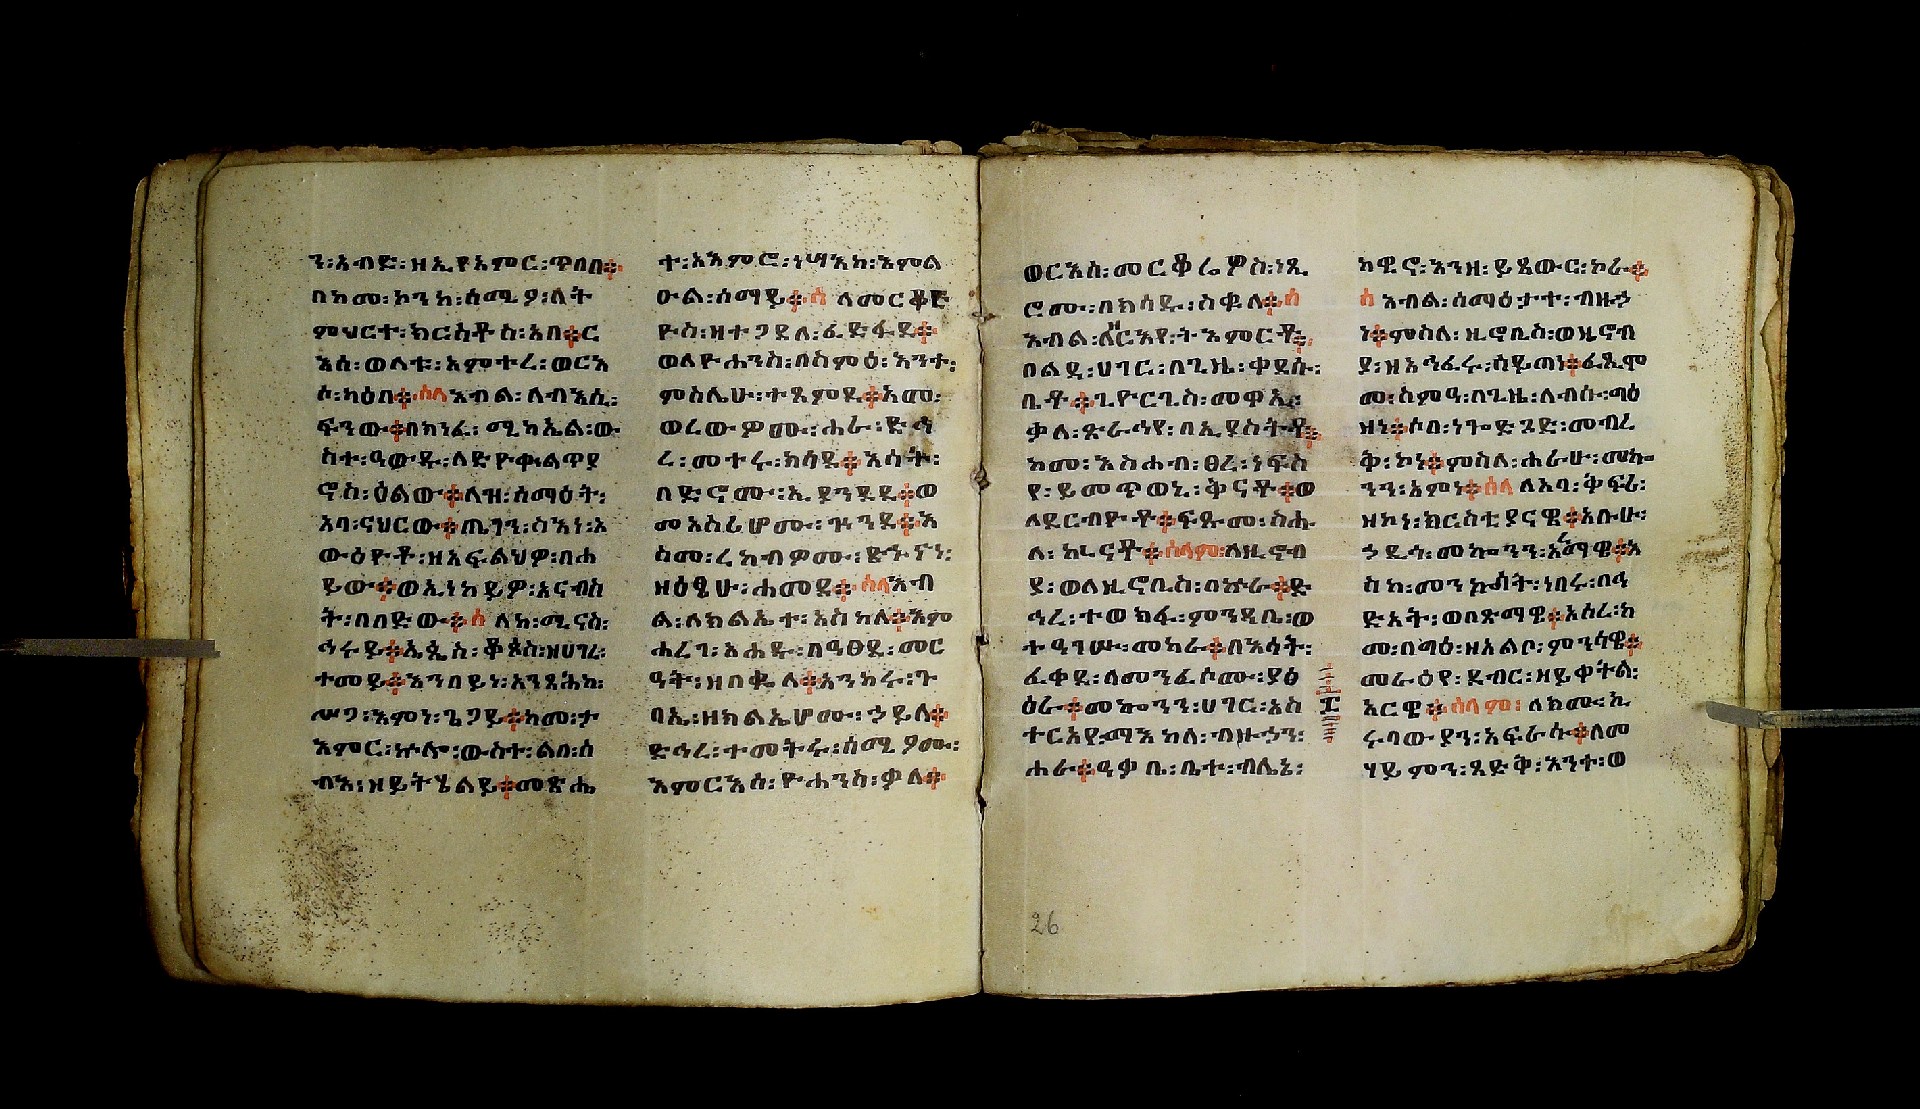 ን፡አብድ፡ዘኢየአምር፡ጥበበ፨
በከመ፡ኮንከ፡ሰሚዖ፡ለት
ምህርተ፡ክርስቶስ፡አበ፨ር
እሰ፡ወልቱ፡አምተረ፡ወርእ
ሶ፡ካዕበ፨ሰላእብል፡ለብእሲ፡
ፍንው፨በክንፈ፡ሚካኤል፡ው
ስተ፡ዓውዱ፡ለድዮቁልጥያ
ኖስ፡ዕልው፨ለዝ፡ሰማዕት፡
አባ፡ናህርው፨ጤገን፡ስእነ፡አ
ውዕዮቶ፡ዘአፍልህዎ፡በሐ
ይው፨ወኢነከይዎ፡አናብስ
ት፡በበድው፨ሰ ለከ፡ሚናስ፡
ኅሩይ፨ኤጲስ፡ቆጶስ፡ዘሀገረ፡
ተመይ፨እንበይነ፡አንጸሕከ፡
ሥጋ፡እምነ፡ጌጋይ፨ከመ፡ታ
እምር፡ኵሎ፡ውስተ፡ልበ፡ሰ
ብእ፡ዘይትሄልይ፨መጽሔ
ተ፡አእምሮ፡ነሣእከ፡እምል
ዑል፡ሰማይ፨ሰ ለመርቆሬ
ዮስ፡ዘተጋደለ፡ፈድፋደ፨
ወለዮሐንስ፡በስምዕ፡እንተ፡
ምስሌሁ፡ተጸምደ፨አመ፡
ወረውዎሙ፡ሐራ፡ድኅ
ረ፡መተሩ፡ክሳደ፨እሳት፡
በድኖሙ፡ኢያንደደ፨ወ
መአስሪሆሙ፡ጕንደ፨እ
ስመ፡ረከብዎሙ፡ድኁኘነ፡
ዘዕፄሁ፡ሐመደ፨ሰላእብ
ል፡ለክልኤተ፡አስካለ፨እም
ሐረገ፡አሐዱ፡በዓፀደ፡መር
ዓት፡ዘበቈለ፨እንከሩ፡ጉ
ባኤ፡ዘክልኤሆሙ፡ኃይለ፨
ድኅረ፡ተመትሩ፡ሰሚዖሙ፡
እምርእሰ፡ዮሐንስ፡ቃለ፨
ወርእስ፡መርቆሬዎስ፡ነጺ
ሮሙ፡በክሳዱ፡ስቁለ፨ሰ
እብል፡ለርእየ፡ትእምርት፨
በልዳ፡ሀገር፡በጊዜ፡ቀደሱ፡
ቤት፨ጊዮርጊስ፡መዋኢ፡
ቃለ፡ጽራኅየ፡በኢያስትት፨
ከመ፡እስሐብ፡ፀረ፡ነፍስ
የ፡ይመጥወኒ፡ቅናት፨ወ
ለደርብዮቶ፨ፍጹመ፡ስሑ
ለ፡ከኒናት፨ሰላም፡ለዚኖብ
ያ፡ወለዚኖቢስ፡በኵራ፨ድ
ኅረ፡ተወክፋ፡ምንዳቤ፡ወ
ተዓገሡ፡መከራ፨በእሳት፡
ፈቀደ፡ለመንፈሶሙ፡ያዕ
ዕራ፨መኰንን፡ሀገር፡አስ
ተርአየ፡ማእከለ፡ብዙኃን፡
ሐራ፨ዓቃቤ፡ቤተ፡ብሌኔ፡
ከዊኖ፡እንዘ፡ይጸውር፡ኮራ፨
ሰ እብል፡ሰማዕታተ፡ብዙኃ
ነ፨ምስለ፡ዚኖቢስ፡ወዜኖብ
ያ፡ዘአኅፈሩ፡ሰይጣነ፨ፈጺሞ
ሙ፡ስምዓ፡በጊዜ፡ለብሱ፡ጣዕ
ዘነ፨ሶበ፡ነጐድጓድ፡መብረ
ቅ፡ኮነ፨ምስለ፡ሐራሁ፡መኰ
ንን፡አምነ፨ሰላ ለአባ፡ቅፍሪ፡
ዘኮነ፡ክርስቲያናዊ፨አቡሁ፡
ኃዲጎ፡መኰንን፡አረማዊ፨እ
ስከ፡መንኰሰት፡ነበሩ፡በኀ
ድአት፡ወበጽማዊ፨አሰረ፡ከ
መ፡በጣዕ፡ዘአልቦ፡ምንሳዌ፨
መራዕየ፡ደብር፡ዘይቀትል፡
አርዌ፨ሰላም፡ለከሙ፡ኢ
ሩባውያን፡አፍራስ፨ለመ
ሃይምን፡ጻድቅ፡እንተ፡ወ
26